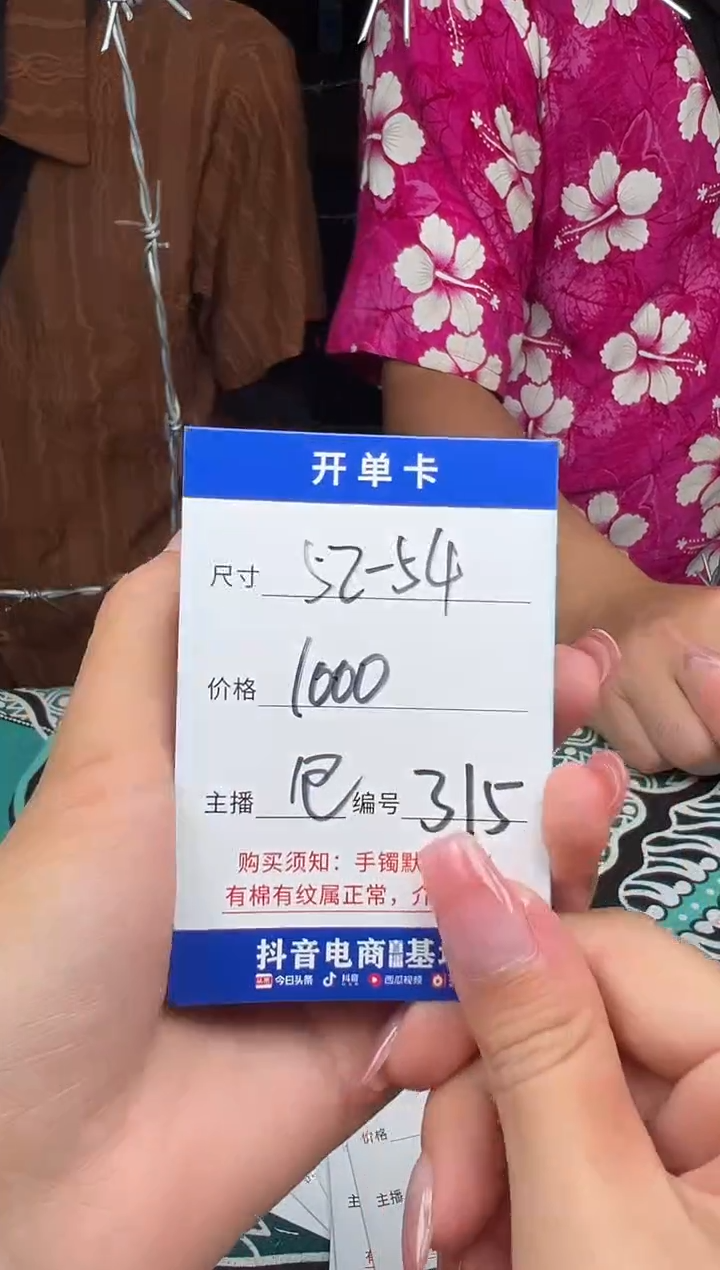 开单卡
尺寸 52-54
价格 1000
主播 编号 315
购买须知：手镯默
有棉有纹属正常，介
抖音电商直播基
今日头条 抖音 西瓜视频
价格
主 主播